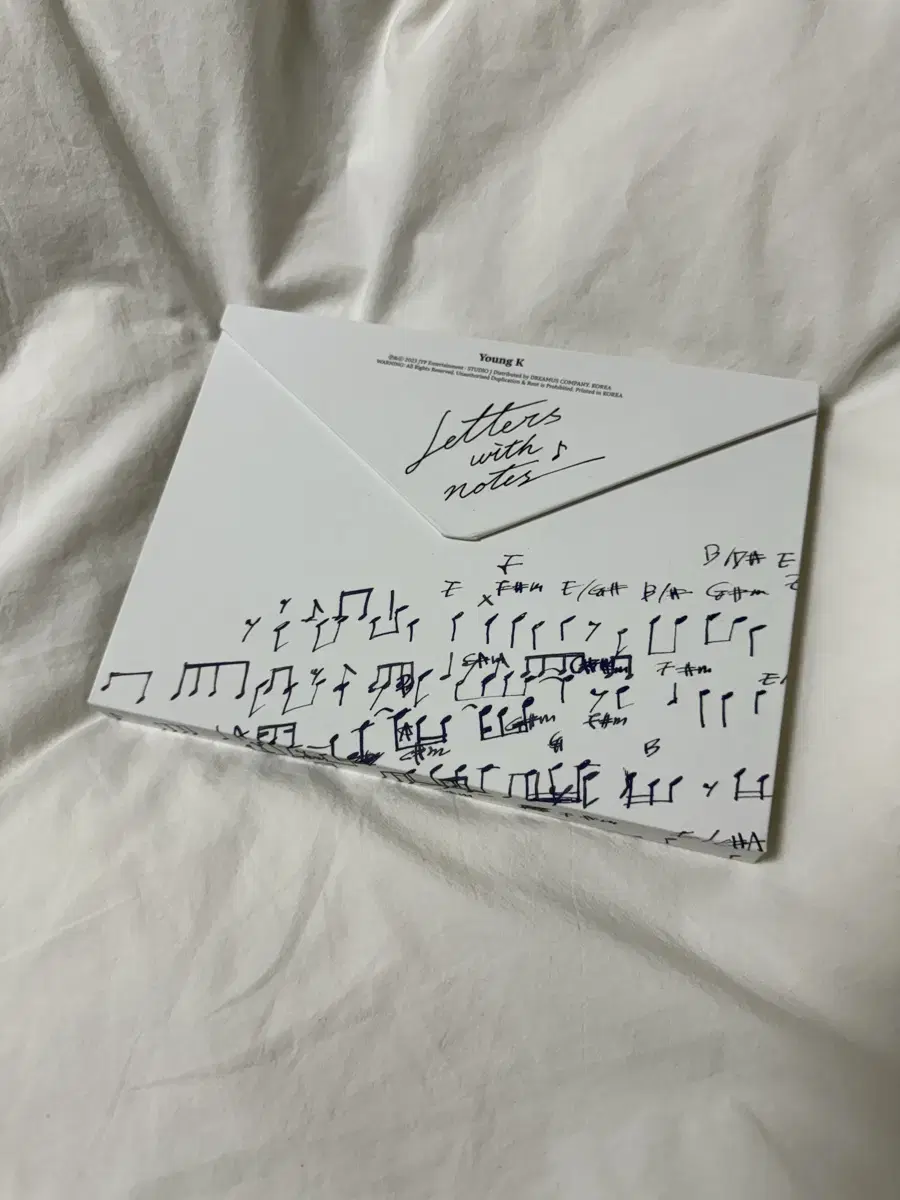 Young K
℗&© 2023 JYP Entertainment · STUDIO J Distributed by DREAMUS COMPANY. KOREA
WARNING: All Rights Reserved. Unauthorized Duplication & Rent is Prohibited. Printed in KOREA
Letters
with ♪
notes
F
B/D# E
E F#m E/G# G#m
F#m
G#m F#m
A C#m
B
#A